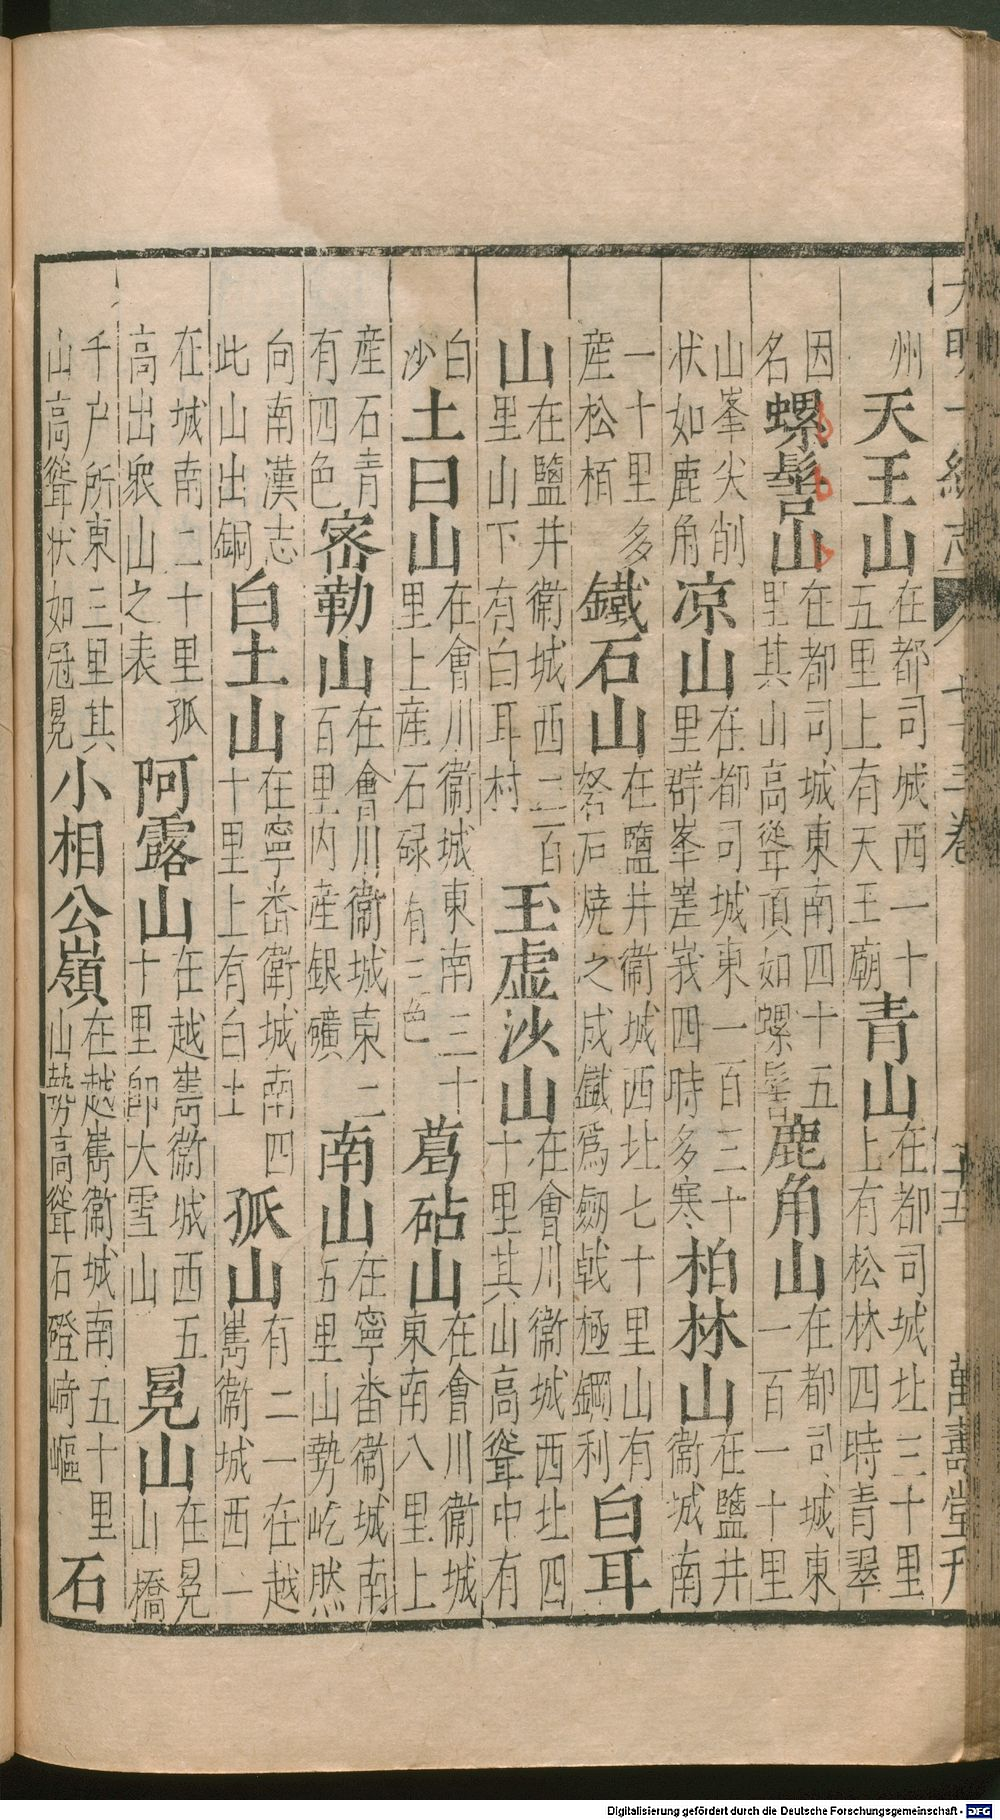 大明一統志 七十三卷 十五 萬壽堂刋
州天王山在都司城西一十五里上有天王廟青山在都司城北三十里上有松林四時青翠
因名螺髻山在都司城東南四十五里其山高聳頂如螺髻鹿角山在都司城東一百一十里
山峯尖削狀如鹿角凉山在都司城東一百三十里群峯嵳峩四時多寒柏林山在鹽井衞城南
一十里多産松栢鐵石山在鹽井衞城西北七十里山有砮石燒之成鐵爲劒戟極鋼利白耳
山在鹽井衞城西二百里山下有白耳村玉虛沙山在會川衞城西北四十里其山高聳中有
白沙土曰山在會川衞城東南三十里上産石碌有三色葛砧山在會川衞城東南八里上
産石青有四色密勒山在會川衞城東二百里内産銀礦南山在寧番衞城南五里山勢屹然
向南漢志此山出銅白土山在寧番衞城南四十里上有白土孤山有二一在越嶲衞城西一
在城南二十里孤高出衆山之表阿露山在越嶲衞城西五十里卽大雪山晃山在晃山橋
千户所東三里其山高聳狀如冠晃小相公嶺在越嶲衞城南五十里山勢高聳石磴崎嶇石
Digitalisierung gefördert durch die Deutsche Forschungsgemeinschaft - DFG